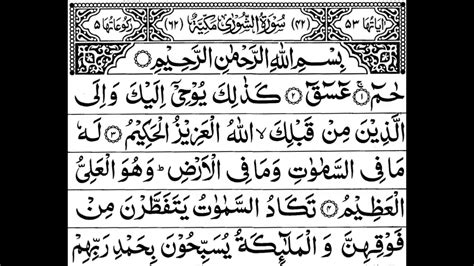 اٰيَاتُهَا ٥٣ (٤٢) سُوْرَةُ الشُّوْرٰى مَكِّيَّةٌ (٦٢) رُكُوْعَاتُهَا ٥
بِسْمِ اللّٰهِ الرَّحْمٰنِ الرَّحِيْمِ
حٰمٓ ۝١ عٓسٓقٓ ۝٢ كَذٰلِكَ يُوْحِيْٓ اِلَيْكَ وَاِلَى
الَّذِيْنَ مِنْ قَبْلِكَ ۙ اللّٰهُ الْعَزِيْزُ الْحَكِيْمُ ۝٣ لَهٗ
مَا فِى السَّمٰوٰتِ وَمَا فِى الْاَرْضِ ؕ وَهُوَ الْعَلِىُّ
الْعَظِيْمُ ۝٤ تَكَادُ السَّمٰوٰتُ يَتَفَطَّرْنَ مِنْ
فَوْقِهِنَّ وَالْمَلٰٓئِكَةُ يُسَبِّحُوْنَ بِحَمْدِ رَبِّهِمْ